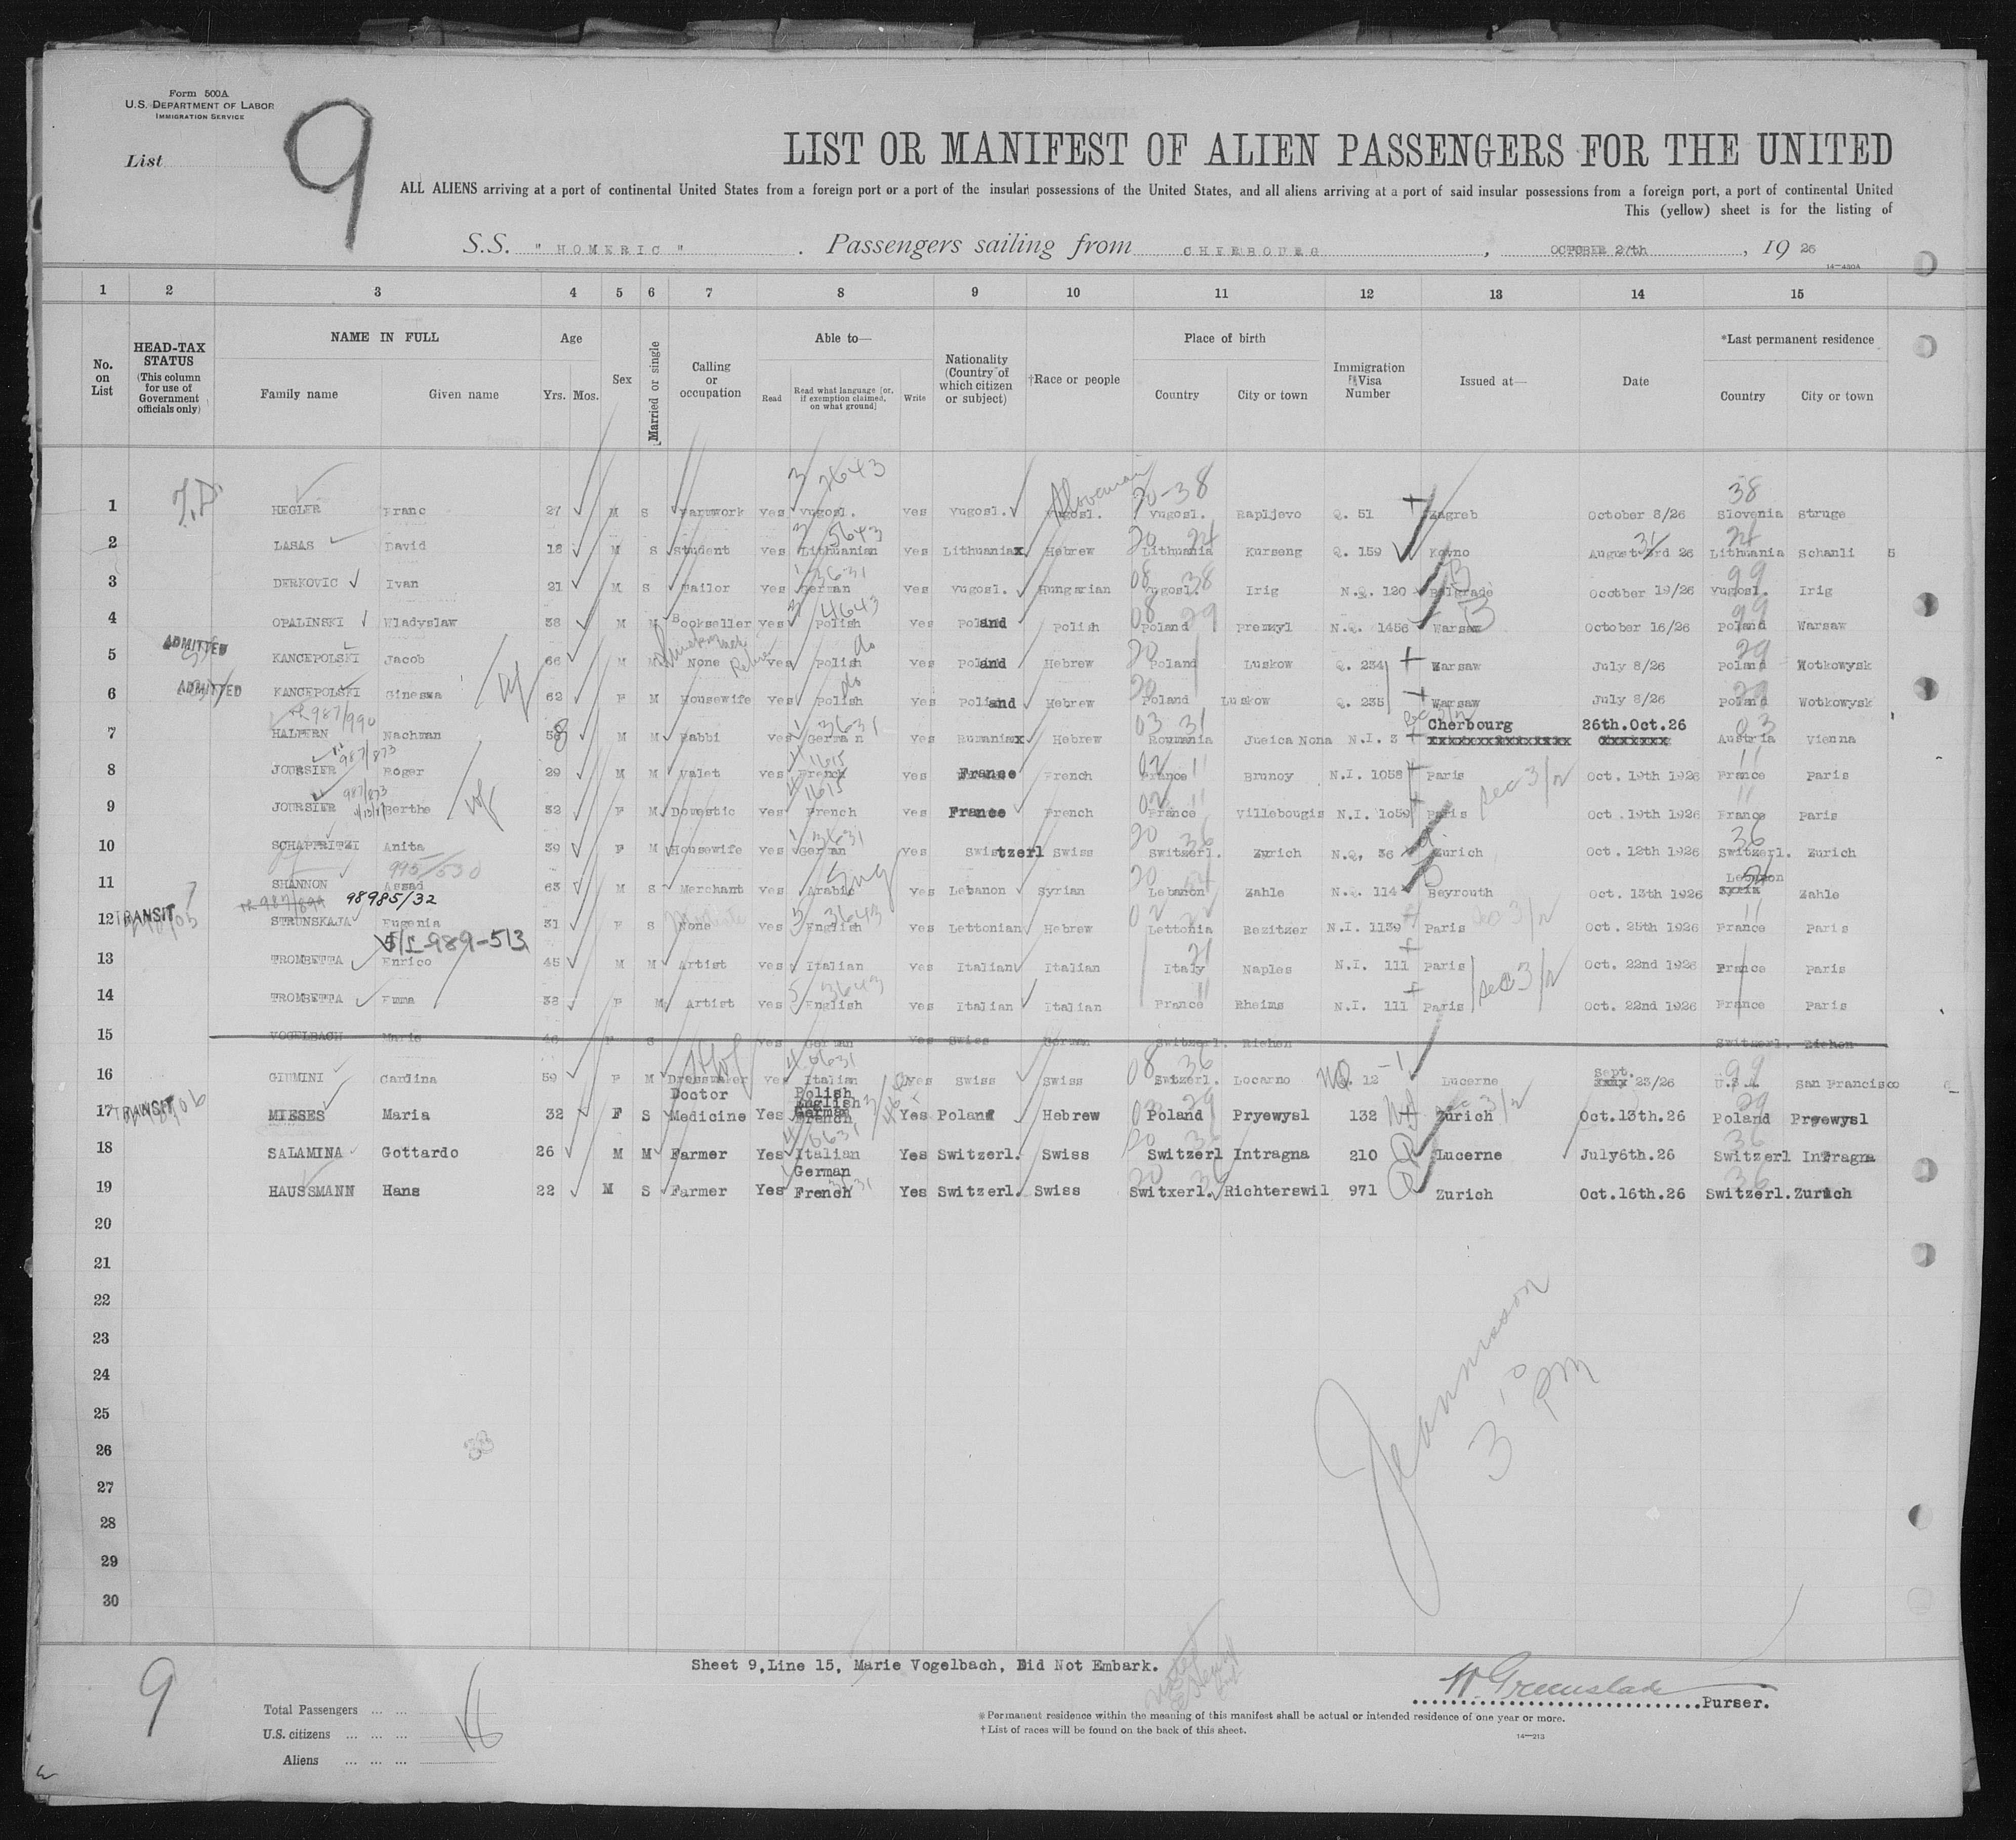 Form 500A
U.S. DEPARTMENT OF LABOR
IMMIGRATION SERVICE
List 9
LIST OR MANIFEST OF ALIEN PASSENGERS FOR THE UNITED
ALL ALIENS arriving at a port of continental United States from a foreign port or a port of the insular possessions of the United States, and all aliens arriving at a port of said insular possessions from a foreign port, a port of continental United
This (yellow) sheet is for the listing of
S.S. " HOMERIC " . Passengers sailing from CHERBOURG , OCTOBER 27th , 19 26
14-430A
1 2 3 4 5 6 7 8 9 10 11 12 13 14 15
No. on List
HEAD-TAX STATUS (This column for use of Government officials only)
NAME IN FULL Family name Given name
Age Yrs. Mos.
Sex
Married or single
Calling or occupation
Able to— Read Read what language [or, if exemption claimed, on what ground] Write
Nationality (Country of which citizen or subject)
†Race or people
Place of birth Country City or town
Immigration Visa Number
Issued at—
Date
*Last permanent residence Country City or town
1 HEGLER Franc 27 M S Farmwork yes Yugosl. yes Yugosl. Slovenian Yugosl. Yugosl. Rapljevo Q. 51 Zagreb October 8/26 Slovenia Struge
2 LASAS David 18 M S Student yes Lithuanian yes Lithuaniax Hebrew Lithuania Kurseng Q. 159 Kovno August 3rd 26 Lithuania Schanli 5
3 DERKOVIC Ivan 21 M S Tailor yes German yes Yugosl. Hungarian Yugosl. Irig N.Q. 120 Belgrade Ocotber 19/26 Yugosl. Irig
4 OPALINSKI Wladyslaw 38 M M Bookseller yes Polish yes Poland Polish Poland Premzyl N.Q. 1456 Warsaw October 16/26 Poland Warsaw
5 ADMITTED KANCEPOLSKI Jacob 66 M M None yes Polish yes Poland Hebrew Poland Luskow Q. 234 Warsaw July 8/26 Poland Wotkowysk
6 ADMITTED KANCEPOLSKI Gineswa 62 F M Housewife yes Polish yes Poland Hebrew Poland Luskow Q. 235 Warsaw July 8/26 Poland Wotkowysk
987/990
7 HALPERN Nachman 58 M M Rabbi yes German yes Rumaniax Hebrew Roumania Jueica Nona N.I. 3 Cherbourg 26th.Oct.26 Austria Vienna
987/873
8 JOURSIER Roger 29 M M Valet yes French yes France French France Brunoy N.I. 1058 Paris sec 3/2 Oct. 19th 1926 France Paris
987/873
9 JOURSIER Berthe 32 F M Domestic yes French yes France French France Villebougis N.I. 1059 Paris Oct .19th 1926 France Paris
10 SCHAPPRITZI Anita 39 F M Housewife yes German yes Switzerl Swiss Switzerl. Zurich N.Q, 36 Zurich Oct. 12th 1926 Switzerl. Zurich
995/530
11 SHANNON Assad 63 M S Merchant yes Arabic yes Lebanon Syrian Lebanon Zahle N.Q. 114 Beyrouth Oct. 13th 1926 Lebanon Zahle
98985/32
12 TRANSIT STRUNSKAJA Eugenia 31 F S None yes English yes Lettonian Hebrew Lettonia Rezitzer N.I. 1139 Paris Oct. 25th 1926 France Paris
989-513
13 TROMBETTA Enrico 45 M M Artist yes Italian yes Italian Italian Italy Naples N.I. 111 Paris sec 3/2 Oct. 22nd 1926 France Paris
14 TROMBETTA Emma 38 F M Artist yes English yes Italian Italian France Rheims N.I. 111 Paris Oct. 22nd 1926 France Paris
15 VOGELBACH Marie 46 F S yes German yes Swiss German Switzerl. Riehen Switzerl. Riehen
16 GIUMINI Carolina 59 F M Dressmaker yes Italian yes Swiss Swiss Switzerl. Locarno 12 Lucerne Sept. 23/26 U.S.A. San Francisco
17 TRANSIT MIESES Maria 32 F S Doctor Medicine Yes Polish English German French Yes Poland Hebrew Poland Pryewysl 132 Zurich Oct.13th.26 Poland Pryewysl
18 SALAMINA Gottardo 26 M M Farmer Yes Italian Yes Switzerl. Swiss Switzerl Intragna 210 Lucerne July6th.26 Switzerl Intragna
19 HAUSSMANN Hans 22 M S Farmer Yes German French Yes Switzerl. Swiss Switxerl. Richterswil 971 Zurich Oct.16th.26 Switzerl. Zurich
20
21
22
23
24
25
26
27
28
29
30
3 10 PM
9
Sheet 9,Line 15, Marie Vogelbach, Did Not Embark.
Total Passengers ... ...
U.S. citizens ... ... ...
Aliens ... ... ...
W. Greenslade Purser.
*Permanent residence within the meaning of this manifest shall be actual or intended residence of one year or more.
†List of races will be found on the back of this sheet.
14-213